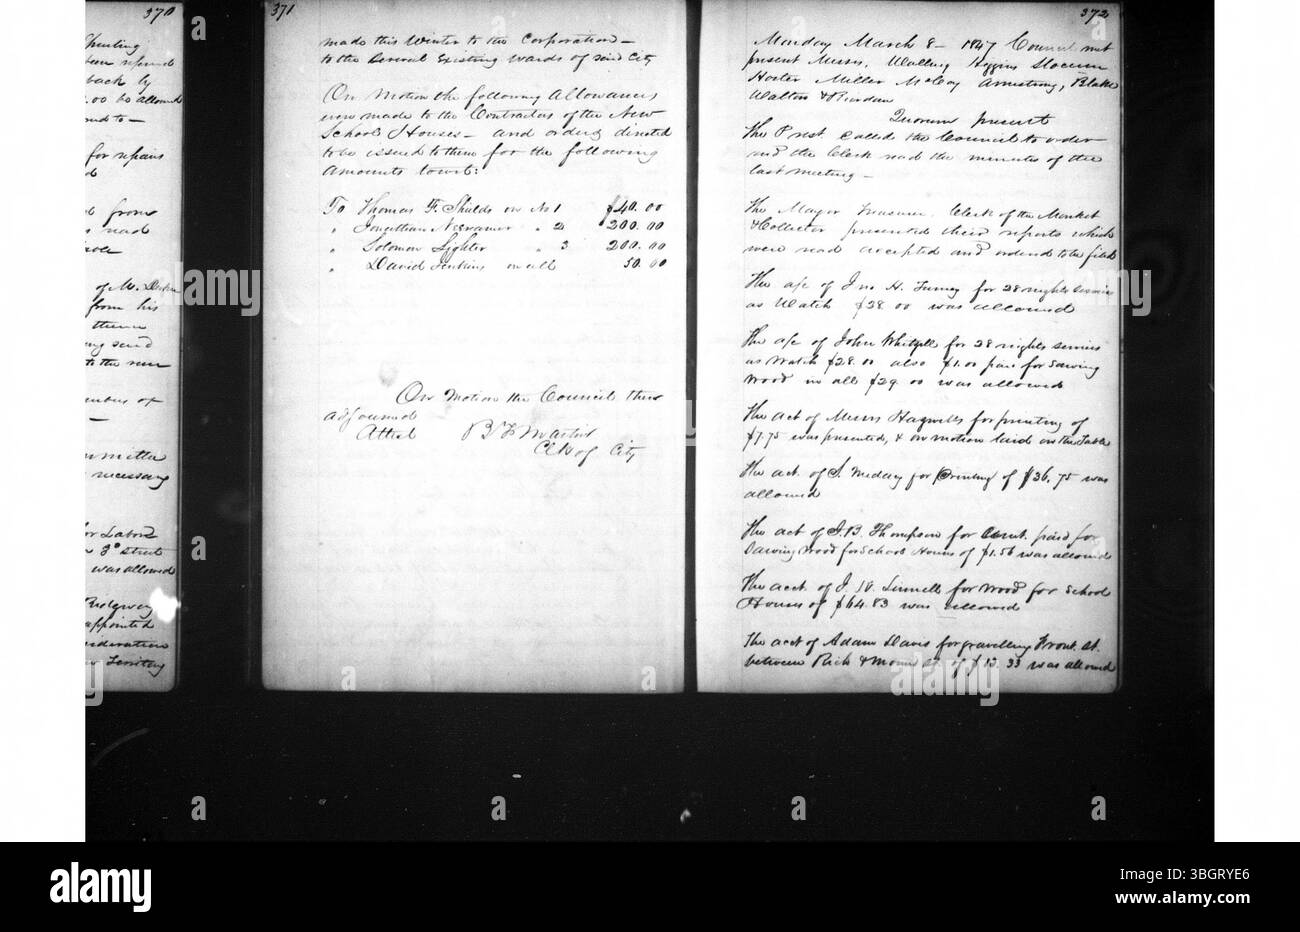 370
Printing
been refered
back by
.00 be allowed
for repairs
from
read
of M.
from his
them
ing said
to the new
mbers of
mmittee
necessary
for Labor
n 3d street
was allowed
Ridgway
appointed
nsideration
Territory
371
made this Winter to the Corporation—
to the Several Existing wards of said City
On Motion the following Allowances
were made to the Contractors of the New
School Houses— and orders directed
to be issued to them for the following
amounts towit:
To Thomas F. Shields on No 1 $40.00
" Jonathan " 2 200.00
" Solomon Lighter " 3 200.00
" David Jenkins on all 50.00
On Motion the Council then
adjourned
Attest B F Martin
Clk of City
372
Monday March 8— 1847 Council met
present Messrs, Walling Higgins Slocum
Horter Miller McCoy Armstrong, Blake
Walters & Riordan
Quorum present
The Prest. called the Council to order
and the Clerk read the minutes of the
last meeting—
The Mayor Treasurer, Clerk of the Market
& Collector presented their reports which
were read accepted and ordered to be filed
The a/c of Jno H. for 28 nights services
as Watch $28.00 was allowed
The a/c of John for 28 nights services
as Watch $28.00 also $1.00 paid for Sawing
Wood in all $29.00 was allowed
The act of Messrs for printing of
$7.75 was presented, & on motion laid on the table
The act. of S. Medary for Printing of $36.75 was
allowed
The act of J. B. Thompson for amt. paid for
Sawing Wood for School Houses of $1.56 was allowed
The acct. of J. W. for Wood for School
Houses of $64.83 was allowed
The acct of Adam Davis for gravelling Front St.
between Rich & Mound St. of $13.33 was allowed
alamy
Image ID: 3BGRYE6
www.alamy.com